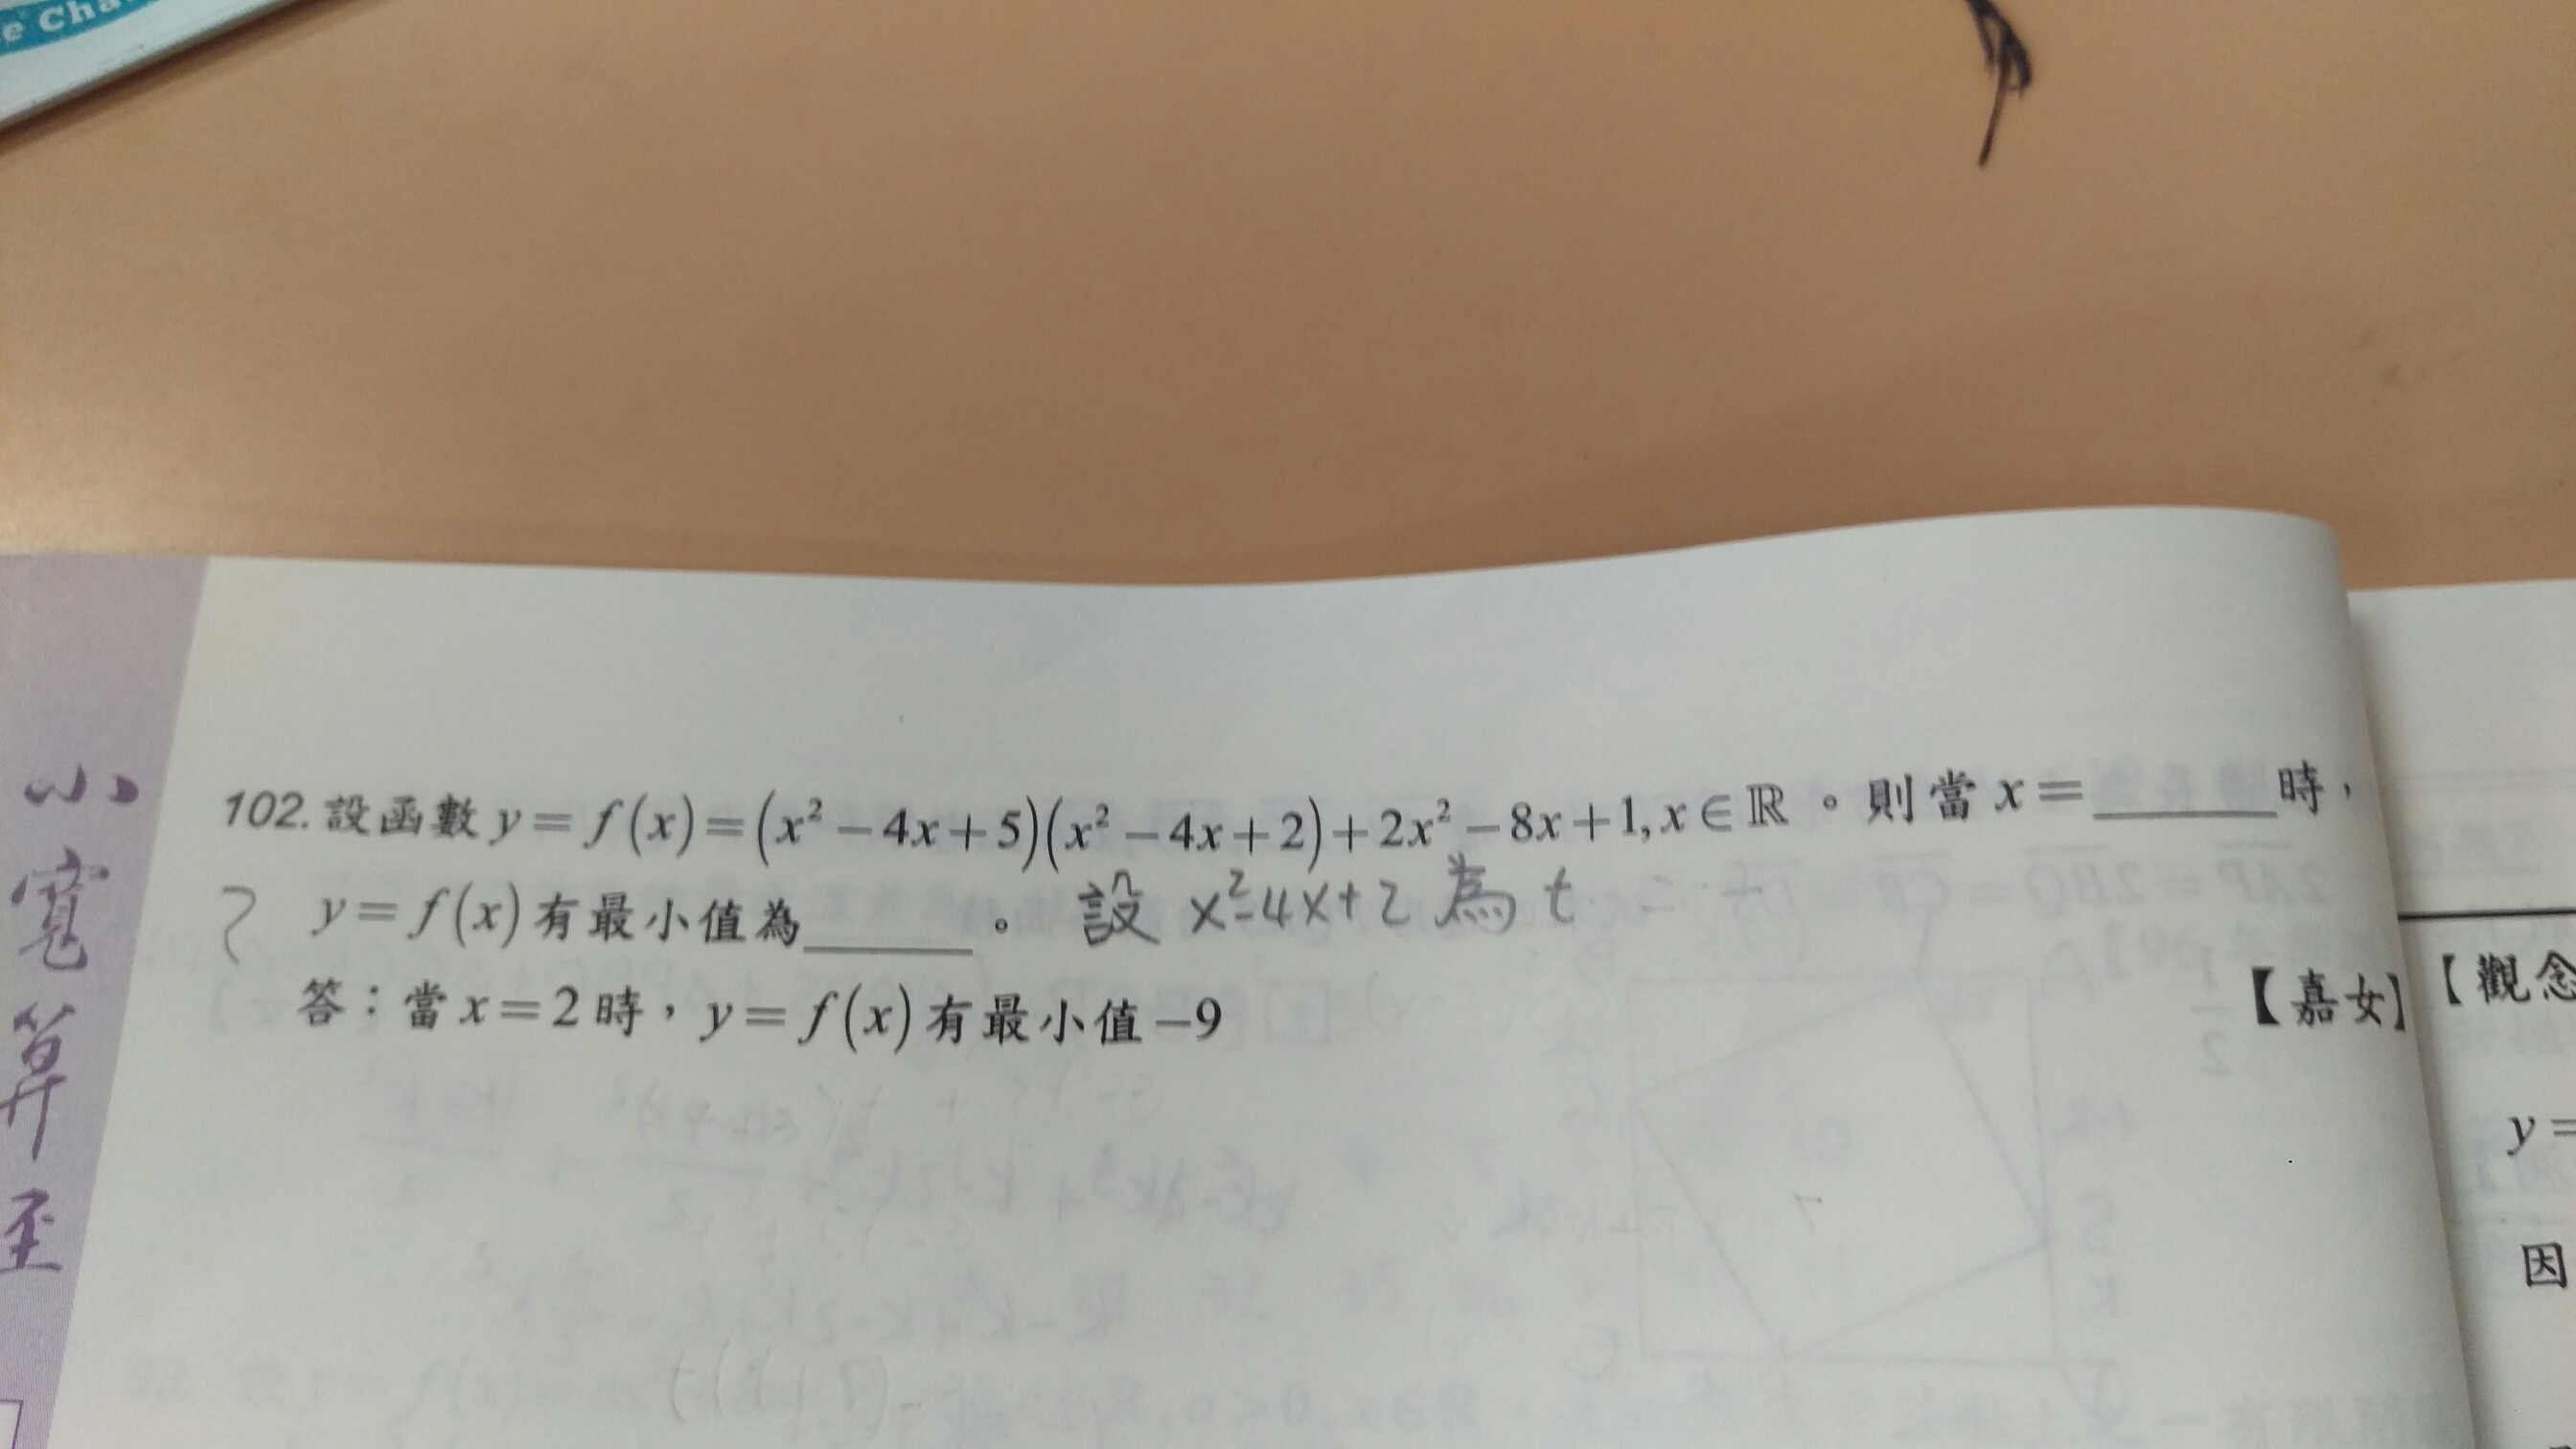 e Cha
小寬算至
102. 設函數 y = f(x) = (x² − 4x + 5)(x² − 4x + 2) + 2x² − 8x + 1, x ∈ ℝ 。則當 x = ______ 時，
y = f(x) 有最小值為 ______ 。 設 x²-4x+2 為 t
答：當 x = 2 時，y = f(x) 有最小值 −9
【嘉女】
【觀念
y =
因